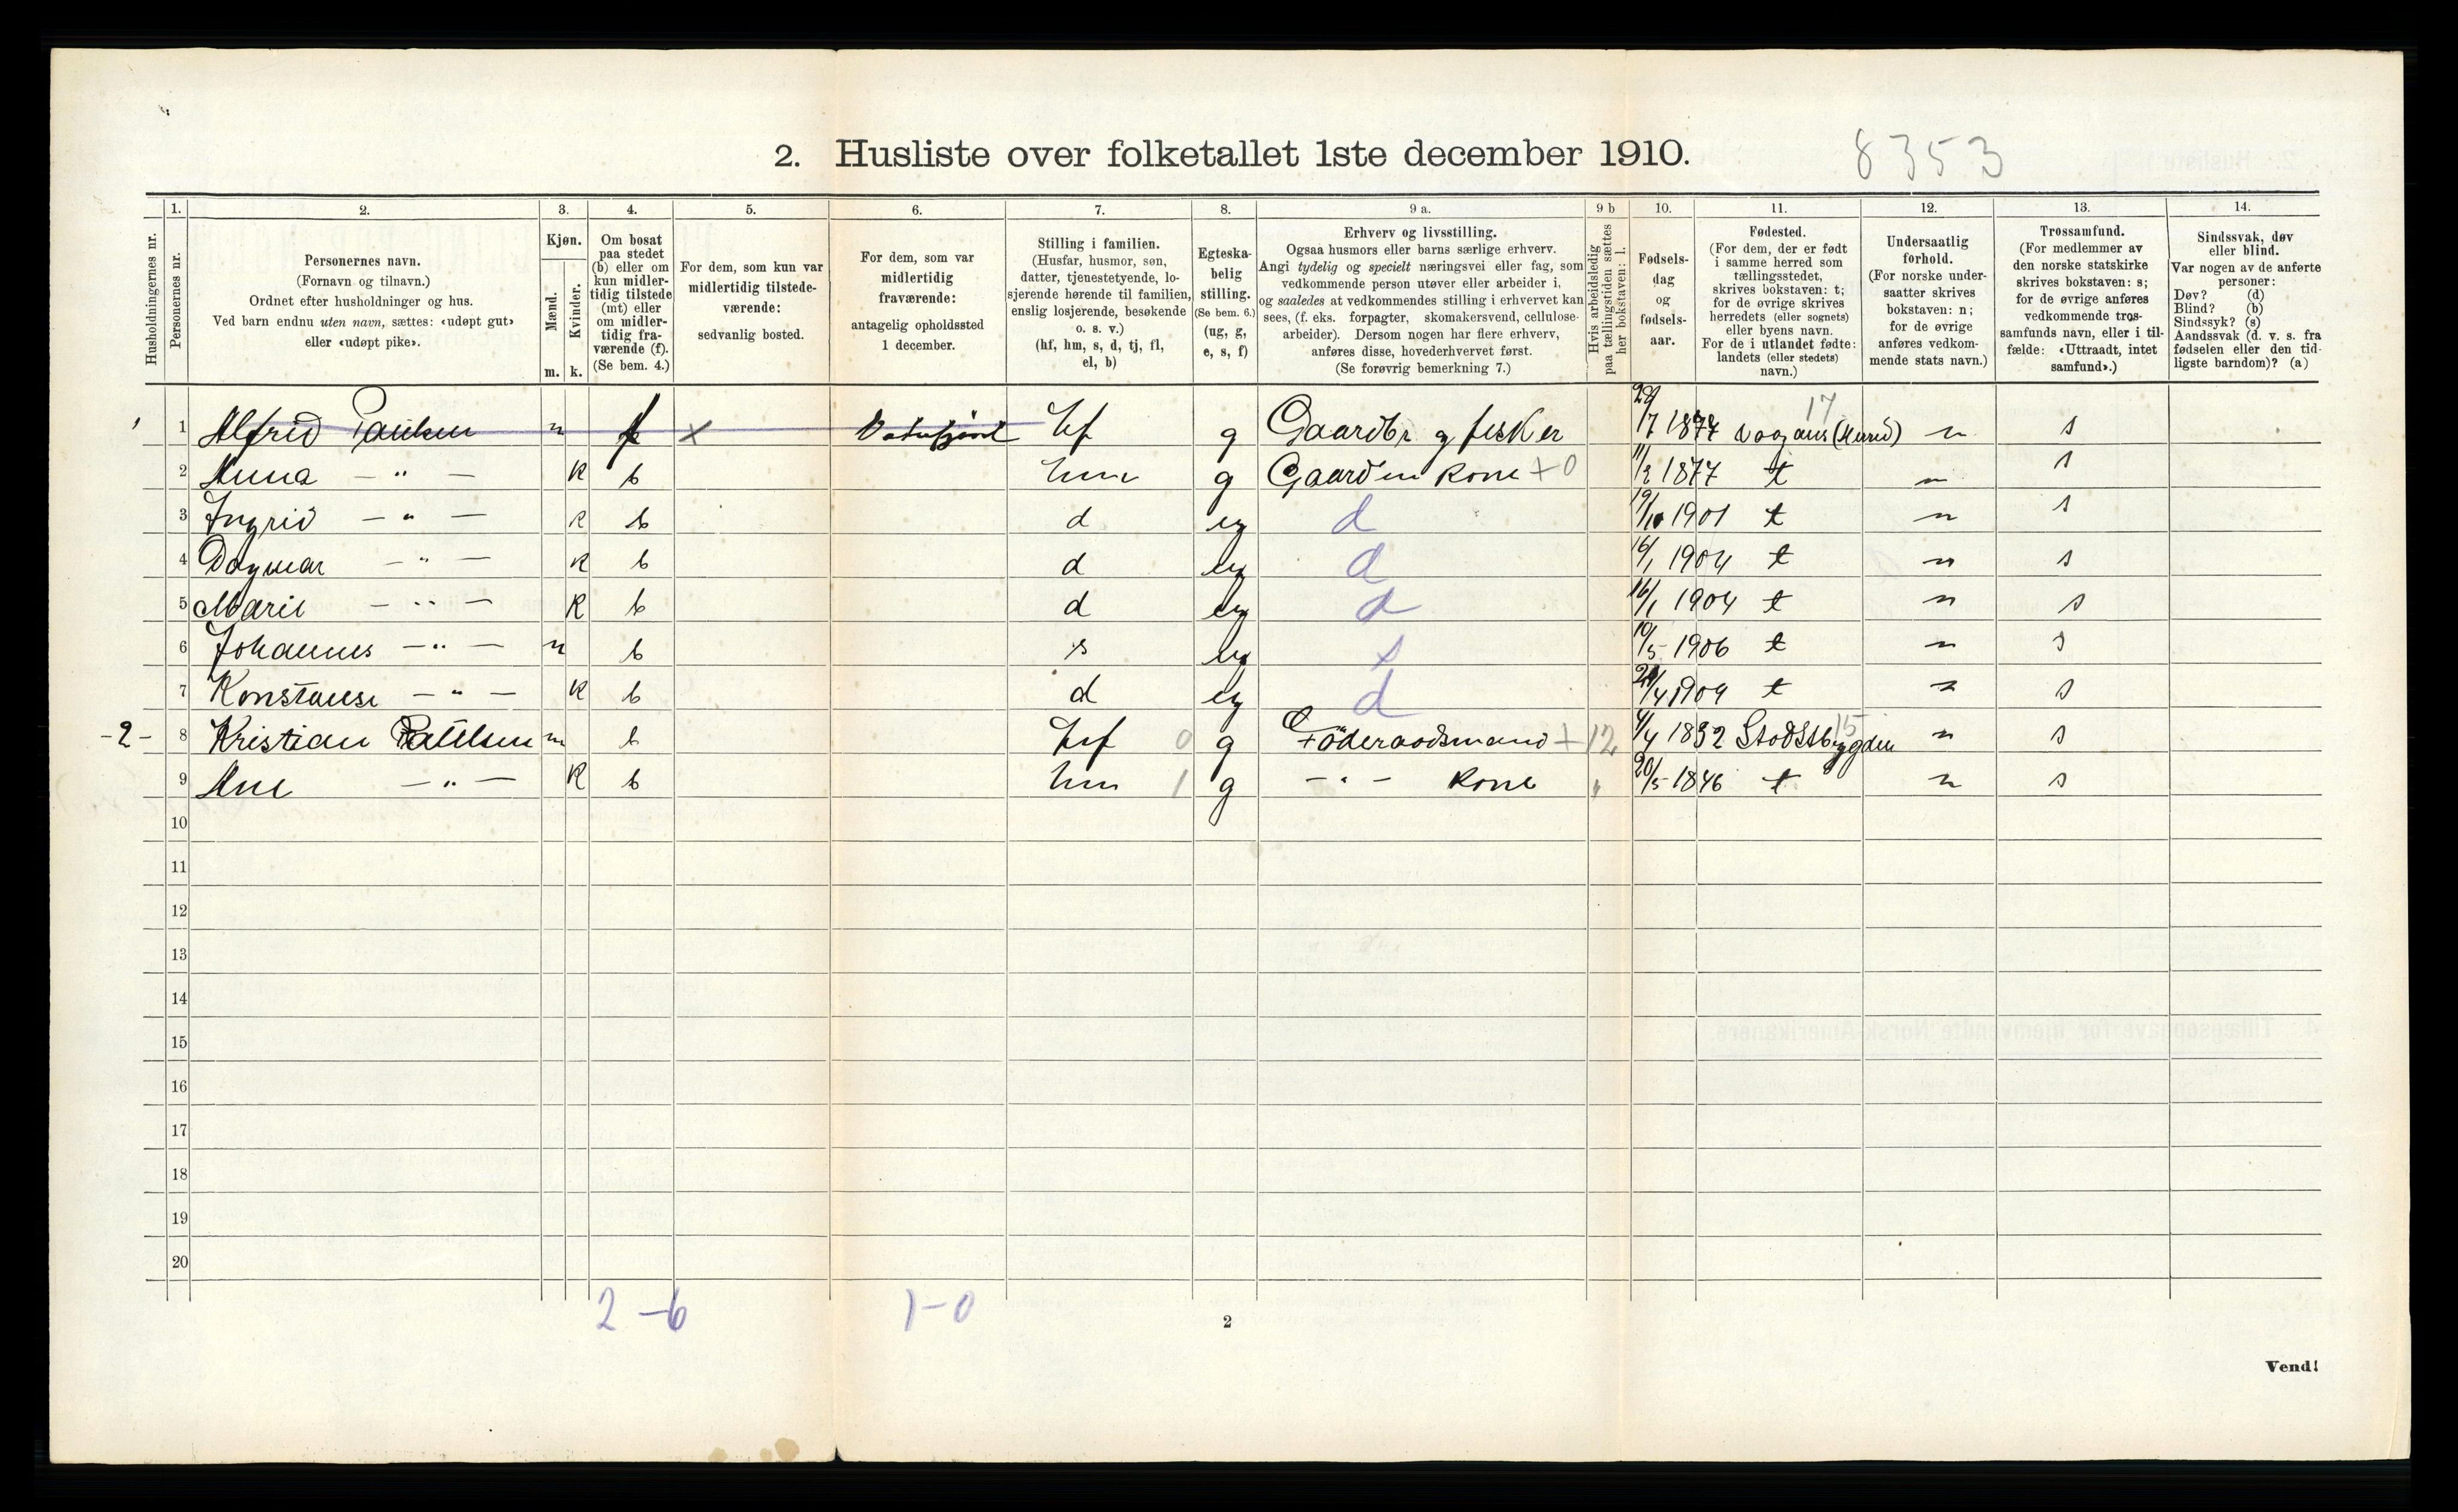 2. Husliste over folketallet 1ste december 1910.
8353
Husholdningernes nr.
1.
Personernes nr.
2.
Personernes navn.
(Fornavn og tilnavn.)
Ordnet efter husholdninger og hus.
Ved barn endnu uten navn, sættes: «udøpt gut»
eller «udøpt pike».
3.
Kjøn.
Mænd.
Kvinder.
m. k.
4.
Om bosat
paa stedet
(b) eller om
kun midler-
tidig tilstede
(mt) eller
om midler-
tidig fra-
værende (f).
(Se bem. 4.)
5.
For dem, som kun var
midlertidig tilstede-
værende:
sedvanlig bosted.
6.
For dem, som var
midlertidig
fraværende:
antagelig opholdssted
1 december.
7.
Stilling i familien.
(Husfar, husmor, søn,
datter, tjenestetyende, lo-
sjerende hørende til familien,
enslig losjerende, besøkende
o. s. v.)
(hf, hm, s, d, tj, fl,
el, b)
8.
Egteska-
belig
stilling.
(Se bem. 6.)
(ug, g,
e, s, f)
9 a.
Erhverv og livsstilling.
Ogsaa husmors eller barns særlige erhverv.
Angi tydelig og specielt næringsvei eller fag, som
vedkommende person utøver eller arbeider i,
og saaledes at vedkommendes stilling i erhvervet kan
sees, (f. eks. forpagter, skomakersvend, cellulose-
arbeider). Dersom nogen har flere erhverv,
anføres disse, hovederhvervet først.
(Se forøvrig bemerkning 7.)
9 b
Hvis arbeidsledig
paa tællingstiden sættes
her bokstaven: l.
10.
Fødsels-
dag
og
fødsels-
aar.
11.
Fødested.
(For dem, der er født
i samme herred som
tællingsstedet,
skrives bokstaven: t;
for de øvrige skrives
herredets (eller sognets)
eller byens navn.
For de i utlandet fødte:
landets (eller stedets)
navn.)
12.
Undersaatlig
forhold.
(For norske under-
saatter skrives
bokstaven: n;
for de øvrige
anføres vedkom-
mende stats navn.)
13.
Trossamfund.
(For medlemmer av
den norske statskirke
skrives bokstaven: s;
for de øvrige anføres
vedkommende tros-
samfunds navn, eller i til-
fælde: «Uttraadt, intet
samfund».)
14.
Sindssvak, døv
eller blind.
Var nogen av de anførte
personer:
Døv? (d)
Blind? (b)
Sindssyk? (s)
Aandssvak (d. v. s. fra
fødselen eller den tid-
ligste barndom)? (a)
1 1 Alfrid Paulsen m f x hf g Gaardbr og fisker 29/7 1874 17 n s
2 Anna — " — K b hm g Gaarden Kone + 0 11/2 1877 t n s
3 Ingrid — " — K b d ug d 19/10 1901 t n s
4 Dagmar — " — K b d ug d 16/1 1904 t n s
5 Marie — " — K b d ug d 16/1 1904 t n s
6 Johannes — " — m b s ug s 10/5 1906 t n s
7 Konstanse — " — K b d ug d 1909 t n s
-2- 8 Kristian Paulsen m b hf 0 g Föderaadsmand + 12 4/4 1832 Stodsbygden 15 n s
9 Ane — " — K b hm 1 g — " — Kone " 20/5 1846 t n s
10
11
12
13
14
15
16
17
18
19
20
2 – 6 1 – 0
2
Vend!